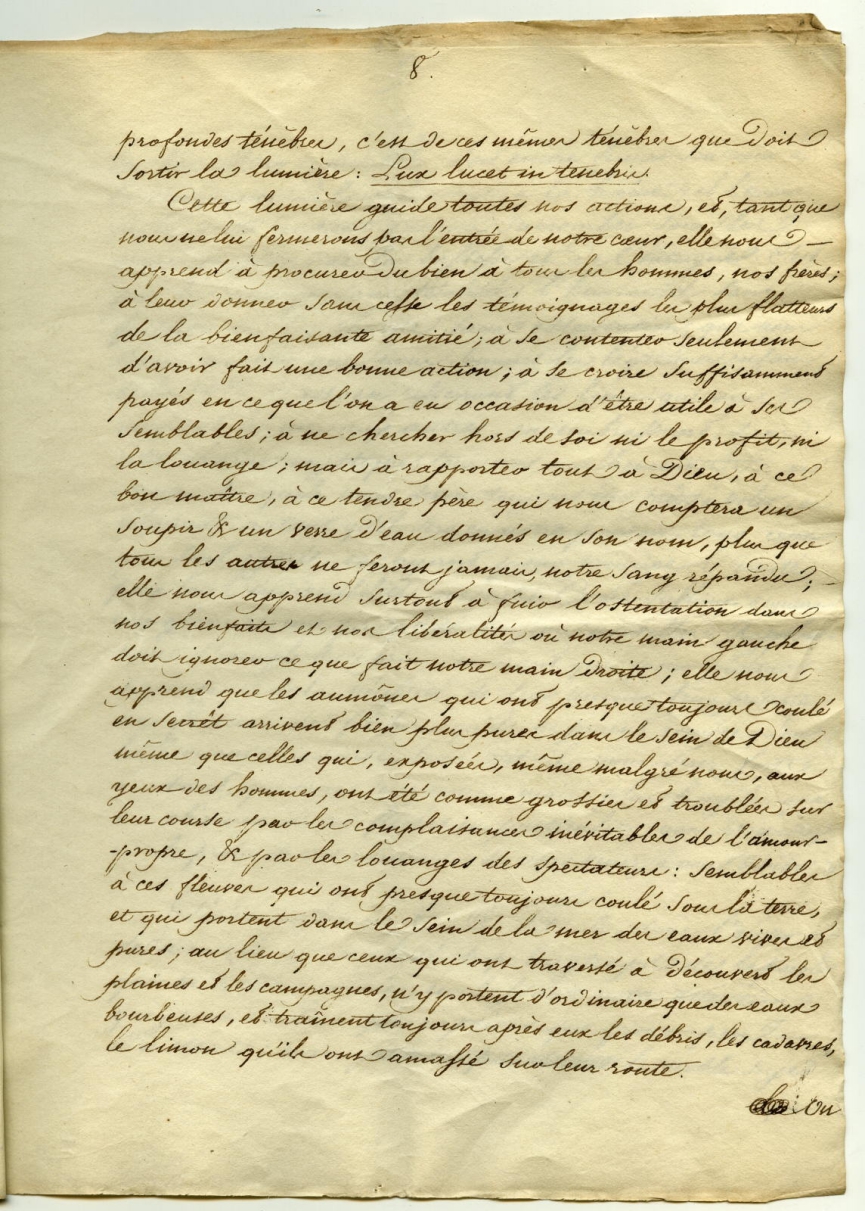 8.
profondes ténèbres, c'est de ces mêmes ténèbres que doit
sortir la lumière: Lux lucet in tenebris.
Cette lumière guide toutes nos actions, et, tant que
nous ne lui fermerons pas l'entrée de notre cœur, elle nous —
apprend à procurer du bien à tous les hommes, nos frères;
à leur donner sans cesse les témoignages les plus flatteurs
de la bienfaisante amitié; à se contenter seulement
d'avoir fait une bonne action; à se croire suffisamment
payés en ce que l'on a eu occasion d'être utile à ses
semblables; à ne chercher hors de soi ni le profit, ni
la louange; mais à rapporter tout à Dieu, à ce
bon maître, à ce tendre père qui nous comptera un
soupir & un verre d'eau donnés en son nom, plus que
tous les autres ne feront jamais, notre sang répandu; –
elle nous apprend surtout à fuir l'ostentation dans
nos bienfaits et nos libéralités où notre main gauche
doit ignorer ce que fait notre main droite; elle nous
apprend que les aumônes qui ont presque toujours coulé
en secrêt arrivent bien plus pures dans le sein de Dieu
même que celles qui, exposées, même malgré nous, aux
yeux des hommes, ont été comme grossies et troublées sur
leur course par les complaisances inévitables de l'amour-
-propre, & par les louanges des spectateurs: semblables
à ces fleuves qui ont presque toujours coulé sous la terre,
et qui portent dans le sein de la mer des eaux vives et
pures; au lieu que ceux qui ont traversé à découvert les
plaines et les campagnes, n'y portent d'ordinaire que des eaux
bourbeuses, et traînent toujours après eux les débris, les cadavres,
le limon qu'ils ont amassé sur leur route.
On